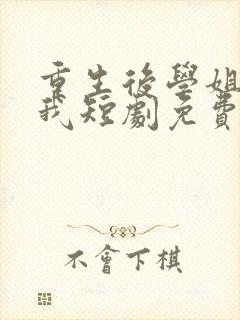 重生後學姐
我短劇免費
不會下棋